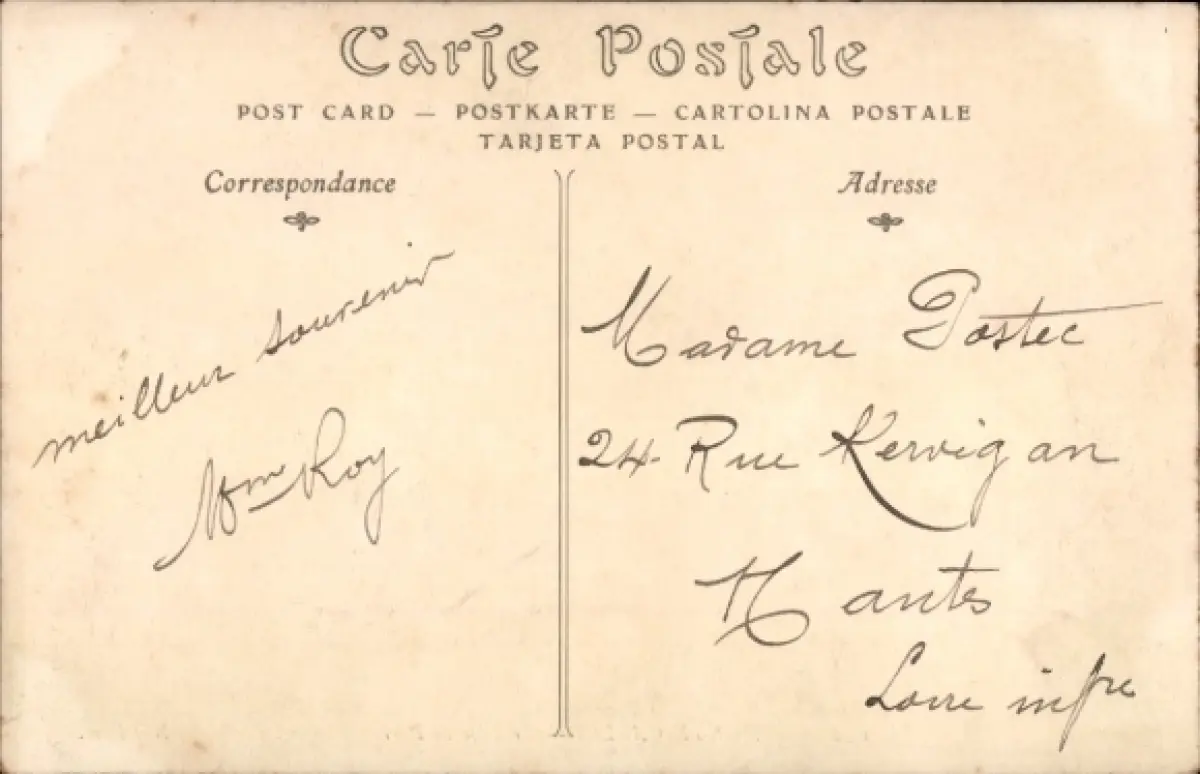 Carte Postale
POST CARD — POSTKARTE — CARTOLINA POSTALE
TARJETA POSTAL
Correspondance
meilleur souvenir
Roy
Adresse
Madame Postec
24. Rue Kervigan
Nantes
Loire infre